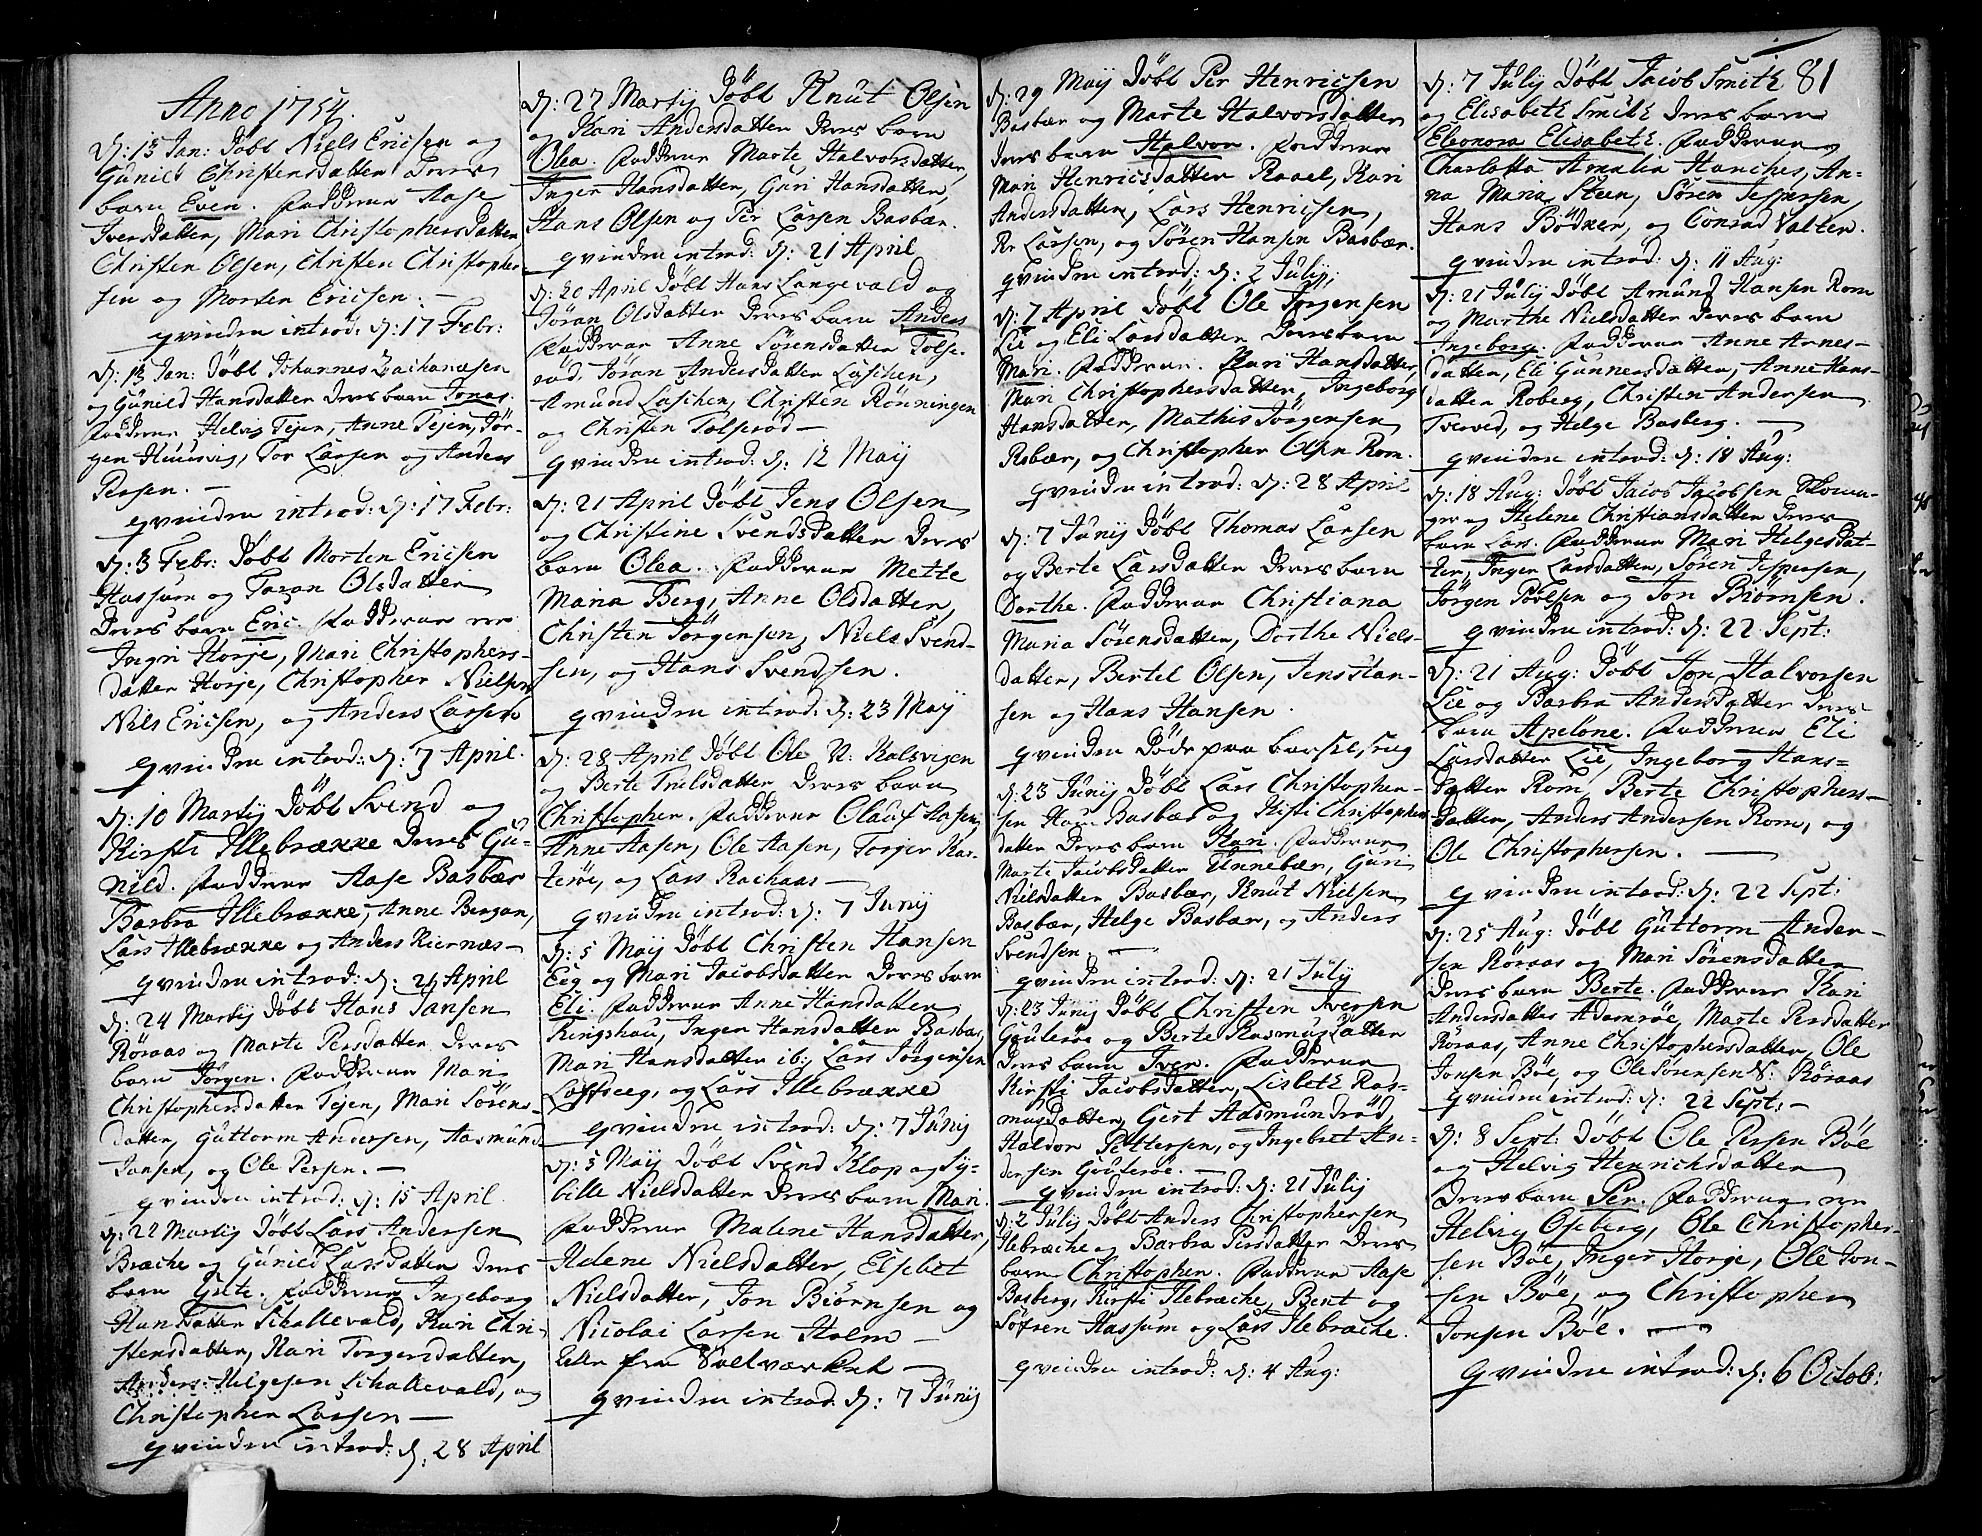 Anno 1754.
d: 13 Jan: døbt Niels Ericsen og
Gunild Christensdatter deres
barn Even. Faddere Aase
Iversdatter, Mari Christophersdatter
Christen Olsen, Christen Christopher-
sen og Morten Ericsen. —
qvinden introd: d: 17 Febr:
d: 13 Jan: døbt Johannes Zachariasen
og Gunild Hansdatter deres barn Jonas.
Faddere Helvig Tejen, Anne Tejen, Jør-
gen Huusvig, Tor Larsen og Anders
Persen. —
qvinden introd: d: 17 Febr:
d: 3 Febr: døbt Morten Ericsen
Hassum og Taran Olsdatter
deres barn Eric. Faddere
Ingri Horje, Mari Christophers-
datter Horje, Christopher Nielsen
Niels Ericsen, og Anders Larsen
qvinden introd: d: 7 April.
d: 10 Martij døbt Svend og
Kirsti Illebrække deres Gu-
nild. Faddere Aase Basbær
Barbra Illebrække, Anne Bergan,
Lars Illebrække og Anders Kiernæs —
qvinden introd: d: 21 April
d: 24 Martij døbt Hans Jansen
Røraas og Marte Persdatter deres
barn Jørgen. Faddere Mari
Christophersdatter Tejen, Mari Sørens-
datter, Guttorm Andersen, Aasmund
Jansen, og Ole Persen. —
qvinden introd: d: 15 April.
d: 22 Martij døbt Lars Andersen
Bræche og Gunild Larsdatter deres
barn Gute. Faddere Ingeborg
Hansdatter Schallevald, Kari Chri-
stensdatter, Kari Torgersdatter,
Anders Helgesen Schallevald, og
Christopher Larsen —
qvinden introd: d: 28 April
d: 27 Martij døbt Knut Olsen
og Kari Andersdatter deres barn
Olea. Faddere Marte Halvorsdatter,
Inger Hansdatter, Guri Hansdatter,
Hans Olsen og Per Larsen Basbær.
qvinden introd: d: 21 April
d: 20 April døbt Hans Langevald og
Jøran Olsdatter deres barn Anders
Faddere Anne Sørensdatter Tolfs-
rød, Jøran Andersdatter Laschen,
Amund Laschen, Christen Rønningen
og Christen Tolfsrød —
qvinden introd: d: 12 Maij
d: 21 April døbt Jens Olsen
og Christine Svendsdatter deres
barn Olea. Faddere Mette
Maria Berg, Anne Olsdatter,
Christen Jørgensen, Niels Svend-
sen, og Hans Svendsen.
qvinden introd: d: 23 Maij
d: 28 April døbt Ole N: Kalsvigen
og Berte Truelsdatter deres barn
Christopher. Faddere Oluf Aasen,
Anne Aasen, Ole Aasen, Torger Kas-
terøe, og Lars Rachaas —
qvinden introd: d: 7 Junij
d: 5 Maij døbt Christen Hansen
Eeg og Mari Jacobsdatter deres barn
Eli. Faddere Anne Hansdatter
Ringshau, Inger Hansdatter Basbær,
Mari Hansdatter ib:, Lars Jørgensen
Loftseeg, og Lars Illebrække
qvinden introd: d: 7 Junij
d: 5 Maij døbt Svend Klop og Sy-
bille Nielsdatter deres barn Mari.
Faddere Malene Hansdatter,
Helene Nielsdatter, Elsebet
Nielsdatter, Jon Biørnsen og
Nicolai Larsen Holm —
alle fra Vallværket —
qvinden introd. d: 7 Junij
d: 29 Maij døbt Per Henricsen
Basbær og Marte Halvorsdatter
deres barn Halvor. Faddere
Mari Henricsdatter Raael, Kari
Andersdatter, Lars Henricsen,
Per Larsen, og Søren Hansen Basbær.
qvinden introd: d: 2 Julij:
d: 7 April døbt Ole Jørgensen
Lie og Eli Larsdatter deres barn
Mari. Faddere Mari Hansdatter,
Mari Christophersdatter, Ingeborg
Hansdatter, Mathis Jørgensen
Rsbær, og Christopher Olsen Rom.
qvinden introd: d: 28 April
d: 7 Junij døbt Thomas Larsen
og Berte Larsdatter deres barn
Dorthe. Faddere Christiana
Maria Sørensdatter, Dorthe Niels-
datter, Bertel Olsen, Jens Han-
sen og Hans Hansen.
qvinden døde paa barselseng
d: 23 Junij døbt Lars Christopher-
sen Haue Basbær og Kisti Christopher-
datter deres barn Kari. Faddere
Marte Jacobsdatter Unnebær, Guri
Nielsdatter Basbær, Knut Nielsen
Basbær, Helge Basbær, og Anders
Svendsen. —
qvinden introd: d: 21 July
d: 23 Junij døbt Christen Iversen
Gouterøe og Berte Rasmusdatter
deres barn Iver. Faddere
Kirsti Jacobsdatter, Lisbeth Ras-
musdatter, Gert Aasmundrød,
Haldor Pettersen, og Ingebret An-
dersen Gouterøe. —
qvinden introd: d: 21 Julij
d: 2 Julij døbt Anders Christophersen
Ilebræche og Barbra Persdatter deres
barn Christopher. Faddere Aase
Basberg, Kirsti Ilebræche, Bent og
Søfren Hassum og Lars Ilebræche.
qvinden introd: d: 4 Aug:
81
d: 7 Julij døbt Jacob Smith
og Elisabeth Smith deres barn
Eleonora Elisabeth. Faddere
Charlotta Amalia Hanches, An-
na Maria Steen, Søren Jespersen,
Hans Bødker, og Conrad Valter.
qvinden introd: d: 11 Aug:
d: 21 Julij døbt Amund Hansen Rom
og Marthe Nielsdatter deres barn
Ingeborg. Faddere Anne Arnes-
datter, Eli Gunnersdatter, Anne Hans-
datter Roberg, Christen Andersen
Tverved, og Helge Basberg. —
qvinden introd: d: 18 Aug:
d: 18 Aug: døbt Jacob Jacobsen Skoma-
ger og Helene Christiansdatter deres
barn Lars. Faddere Mari Helgesdat-
ter, Inger Larsdatter, Søren Jespersen,
Jørgen Povelsen og Jon Biørnsen.
qvinden introd: d: 22 Sept:
d: 21 Aug: døbt Jon Halvorsen
Lie og Barbra Andersdatter deres
barn Apelone. Faddere Eli
Larsdatter Lie, Ingeborg Hans-
datter Rom, Berte Christophers-
datter, Anders Andersen Rom, og
Ole Christophersen. —
qvinden introd: d: 22 Sept:
d: 25 Aug: døbt Guttorm Ander-
sen Røraas og Mari Sørensdatter
deres barn Berte. Faddere Kari
Andersdatter Adamrøe, Marte Persdatter
Røraas, Anne Christophersdatter, Ole
Jonsen Bøe, og Ole Sørensen N: Røraas
qvinden introd: d: 22 Sept: —
d: 8 Sept: døbt Ole Persen Bøe
og Helvig Henrichsdatter
deres barn Per. Faddere
Helvig Oseberg, Ole Christopher-
sen Bøe, Inger Horge, Ole Jon-
sen Bøe, og Christopher
Jonsen Bøe. —
qvinden introd: d: 6 Octob: